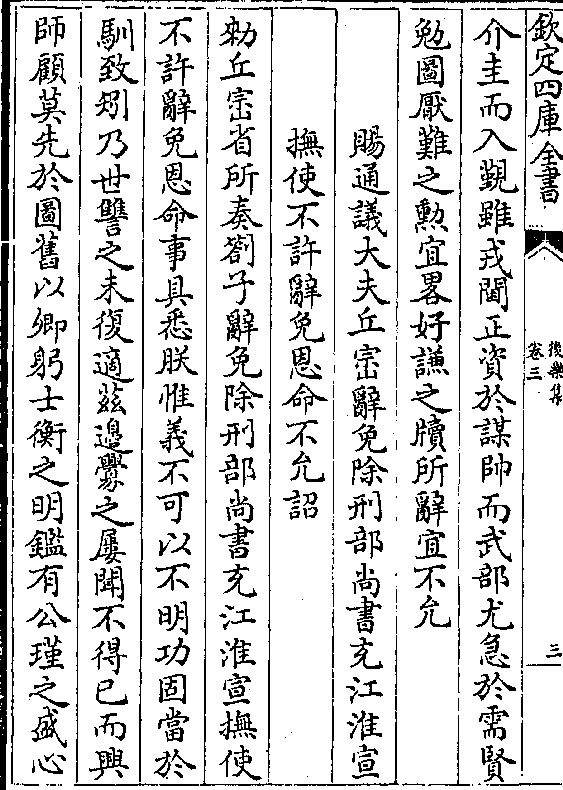 欽定四庫全書
後樂集
卷三
三
介圭而入覲雖戎閫正資於謀帥而武部尤急於需賢
勉圖厭難之勲宜畧好謙之牘所辭宜不允
賜通議大夫丘崈辭免除刑部尚書充江淮宣
撫使不許辭免恩命不允詔
勑丘崈省所奏劄子辭免除刑部尚書充江淮宣撫使
不許辭免恩命事具悉朕惟義不可以不明功固當於
馴致矧乃世讐之未復適茲邉釁之屢聞不得已而興
師顧莫先於圖舊以卿躬士衡之明鑑有公瑾之盛心